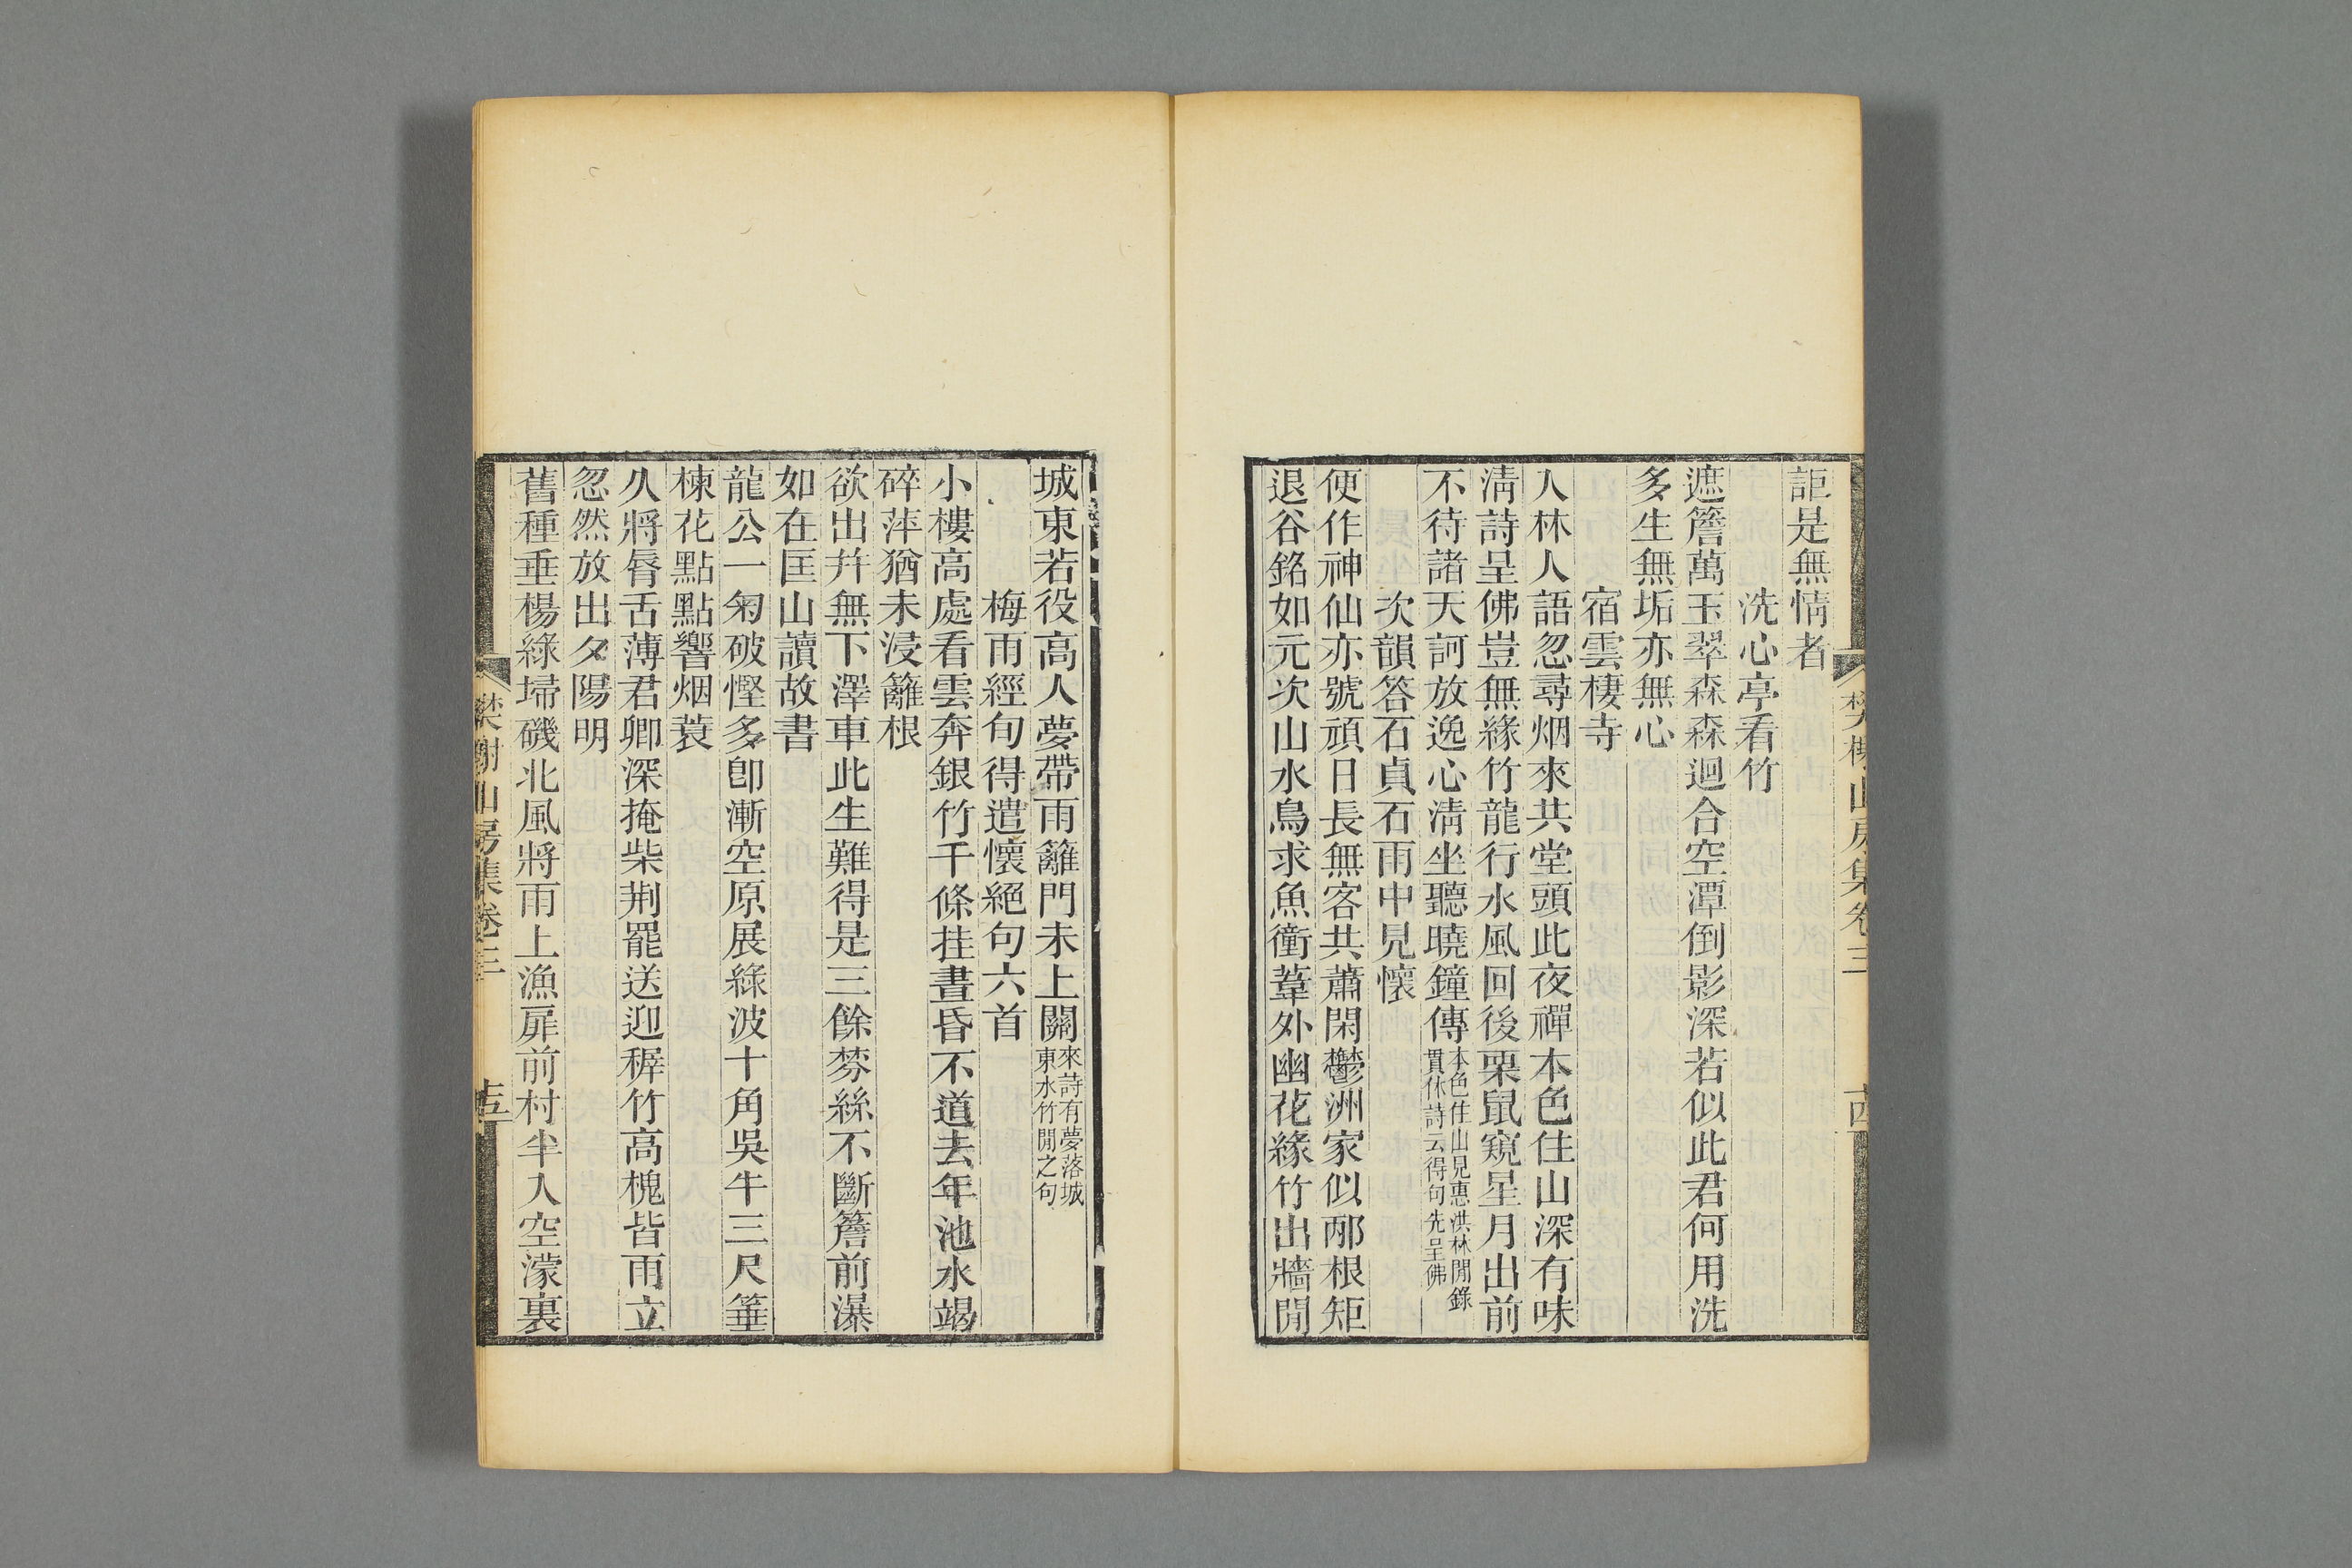 樊榭山房集卷三
十四
詎是無情者
洗心亭看竹
遮簷萬玉翠森森迴合空潭倒影深若似此君何用洗
多生無垢亦無心
宿雲棲寺
人林人語忽尋烟來共堂頭此夜禪本色住山深有味
淸詩呈佛豈無緣竹龍行水風回後栗鼠窺星月出前
不待諸天訶放逸心淸坐聽曉鐘傳本色住山見惠洪林閒錄
貫休詩云得句先呈佛
次韻答石貞石雨中見懷
便作神仙亦號頑日長無客共蕭閑鬱洲家似邴根矩
退谷銘如元次山水鳥求魚衝葦外幽花緣竹出牆閒
城東若役高人夢帶雨籬門未上關來詩有夢落城
東水竹閒之句
梅雨經旬得遣懷絕句六首
小樓高處看雲奔銀竹千條挂晝昏不道去年池水竭
碎萍猶未浸籬根
欲出幷無下澤車此生難得是三餘棼絲不斷簷前瀑
如在匡山讀故書
龍公一匊破慳多卽漸空原展綠波十角吳牛三尺箠
楝花點點響烟蓑
久將脣舌薄君卿深掩柴荆罷送迎穉竹高槐皆雨立
忽然放出夕陽明
舊種垂楊綠埽磯北風將雨上漁扉前村半入空濛裏
樊榭山房集卷三
十五